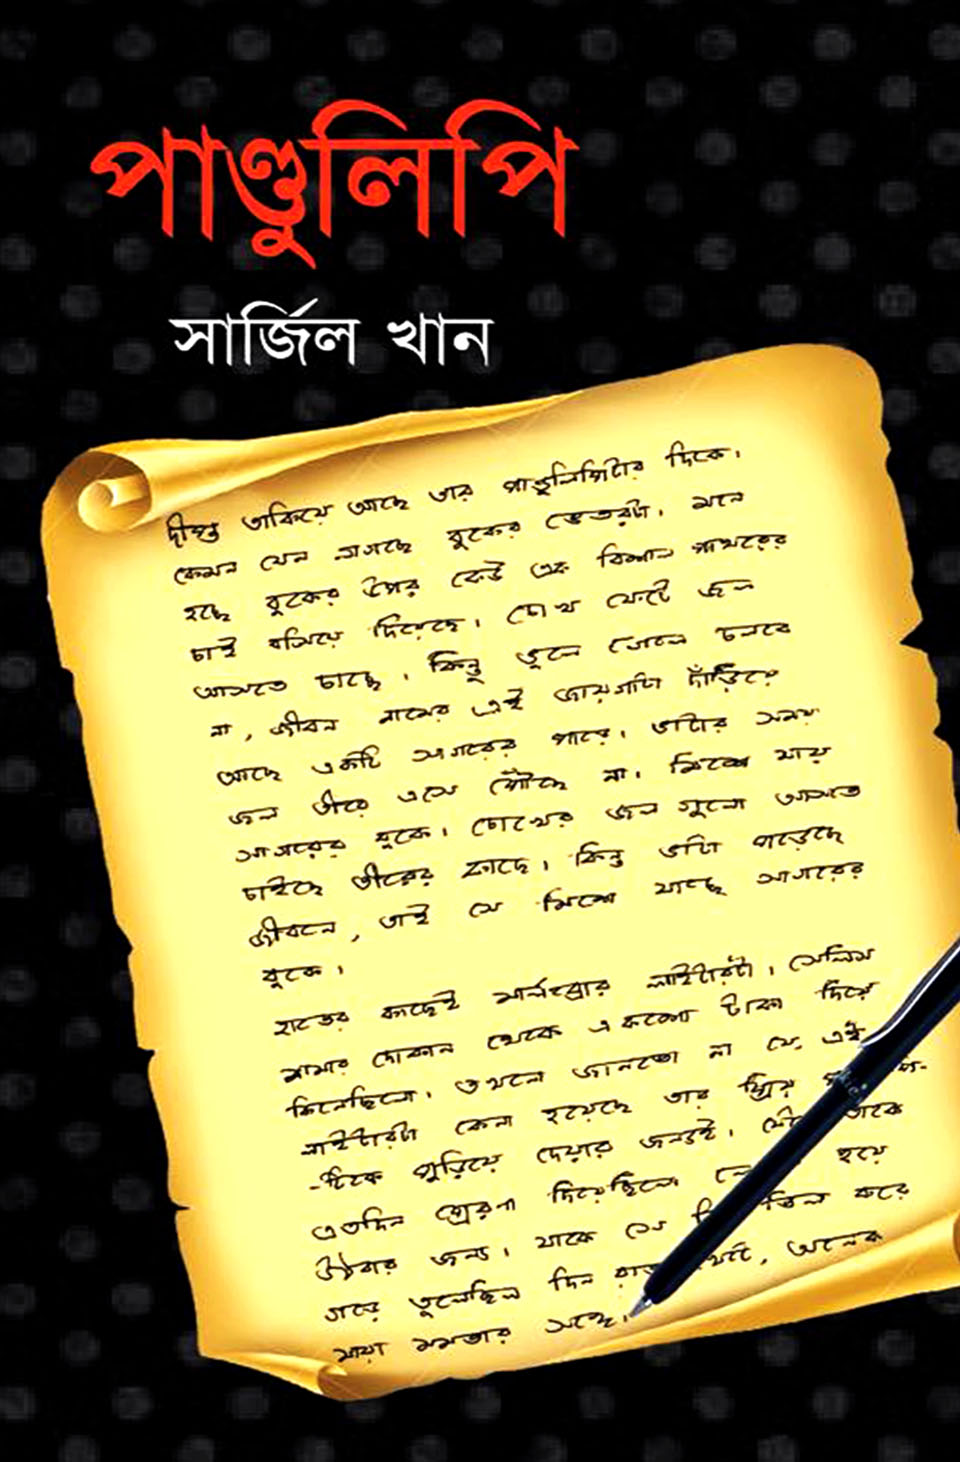 পাণ্ডুলিপি
সার্জিল খান
দীপ্ত তাকিয়ে আছে তার পাণ্ডুলিপিটার দিকে।
কেমন যেন লাগছে বুকের ভেতরটা। মনে
হচ্ছে বুকের উপর কেউ এক বিশাল পাথরের
চাই বসিয়ে দিয়েছে। চোখ ফেটে জল
আসতে চাচ্ছে। কিন্তু ভুলে গেলে চলবে
না, জীবন নামের এই জায়গাটা দাঁড়িয়ে
আছে একটি সাগরের পারে। ভাটার সময়
জল তীরে এসে পৌঁছে না। মিশে যায়
সাগরের বুকে। চোখের জল গুলো আসতে
চাইছে তীরের কাছে। কিন্তু ভাটা পড়েছে
জীবনে, তাই সে মিশে যাচ্ছে সাগরের
বুকে।
হাতের কাছেই মার্লবোরোর লাইটারটা। সেলিম
মামার দোকান থেকে একশো টাকা দিয়ে
কিনেছিলো। তখনো জানতো না যে, এই
লাইটারটা কেনা হয়েছে তার প্রিয়
-টাকে পুড়িয়ে দেয়ার জন্যই। তাকে
এতদিন প্রেরণা দিয়েছিলো হয়ে
উঠবার জন্য। যাকে সে তিল করে
গড়ে তুলেছিল দিন রাত খেটে, অনেক
মায়া মমতার সঙ্গে।